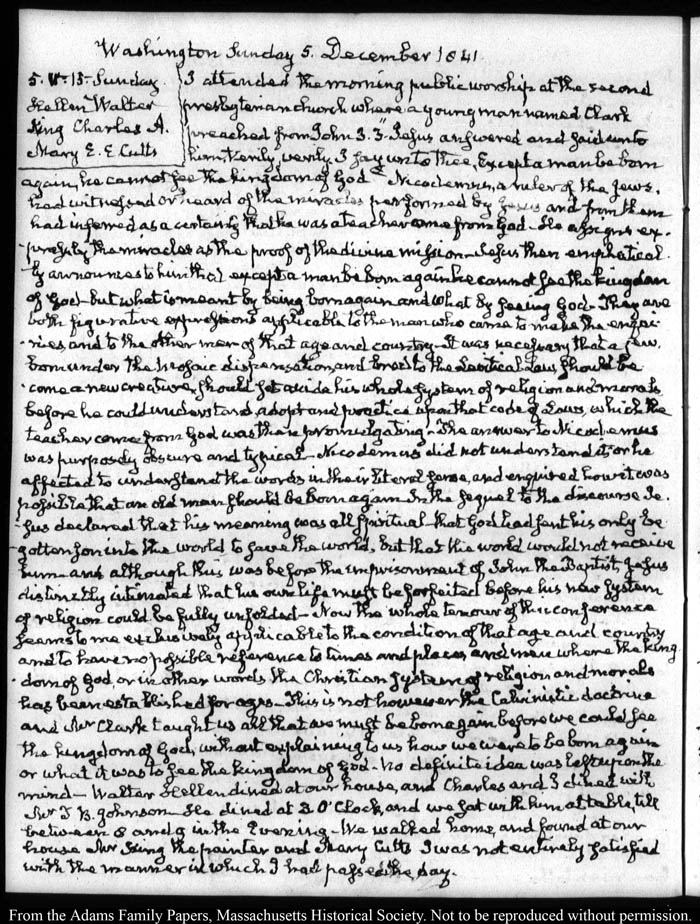 Washington Sunday 5. December 1841.
5. V:15. Sunday
Hellen Walter
King Charles A.
Mary E. E Cutts
I attended the morning public worship at the second
presbyterian church where a young man named Clark
preached from John 3. 3. "Jesus answered and said unto
him, Verily, verily, I say unto thee, Except a man be born
again, he cannot see the kingdom of God" Nicodemus, a ruler of the Jews.
had witnessed or heard of the miracles performed by Jesus and from them
had inferred as a certainty that he was a teacher come from God. He assigns ex-
-pressly the miracles as the proof of the divine mission. Jesus then emphatical-
-ly announces to him that except a man be born again he cannot see the kingdom
of God. but what is meant by being born again and what by seeing God. They are
both figurative expressions applicable to the man who came to make the enqui-
-ries, and to the other men of that age and country. It was necessary that a Jew,
born under the Mosaic dispensation, and bred to the Levitical Law, should be-
-come a new creature, should set aside his whole system of religion and morals
before he could understand, adopt and practice upon that code of Laws, which the
teacher come from God was then promulgating. The answer to Nicodemus
was purposely obscure and typical. Nicodemus did not understand it, or he
affected to understand the words in their literal sense, and enquired how it was
possible that an old man should be born again. In the sequel to the discourse Je-
-sus declared that his meaning was all spiritual. that God had sent his only be-
-gotten son into the world to save the world, but that the world would not receive
him. and although this was before the imprisonment of John the Baptist Jesus
distinctly intimated that his own life must be forfeited before his new system
of religion could be fully unfolded. Now the whole tenour of this conference
seems to me exclusively applicable to the condition of that age and country
and to have no possible reference to times and places and men where the king-
-dom of God, or in other words the Christian system of religion and morals
has been established for ages. This is not however the Calvinistic doctrine
and Mr Clark taught us all that we must be born again before we could see
the kingdom of God, without explaining to us how we were to be born again
or what it was to see the kingdom of God. No definite idea was left upon the
mind. Walter Hellen dined at our house, and Charles and I dined with
Mr J B. Johnson. He dined at 3 O'Clock, and we sat with him at table, till
between 8 and 9 in the Evening. We walked home, and found at our
house Mr King the painter and Mary Cutts I was not entirely satisfied
with the manner in which I had passed the day.
From the Adams Family Papers, Massachusetts Historical Society. Not to be reproduced without permission.